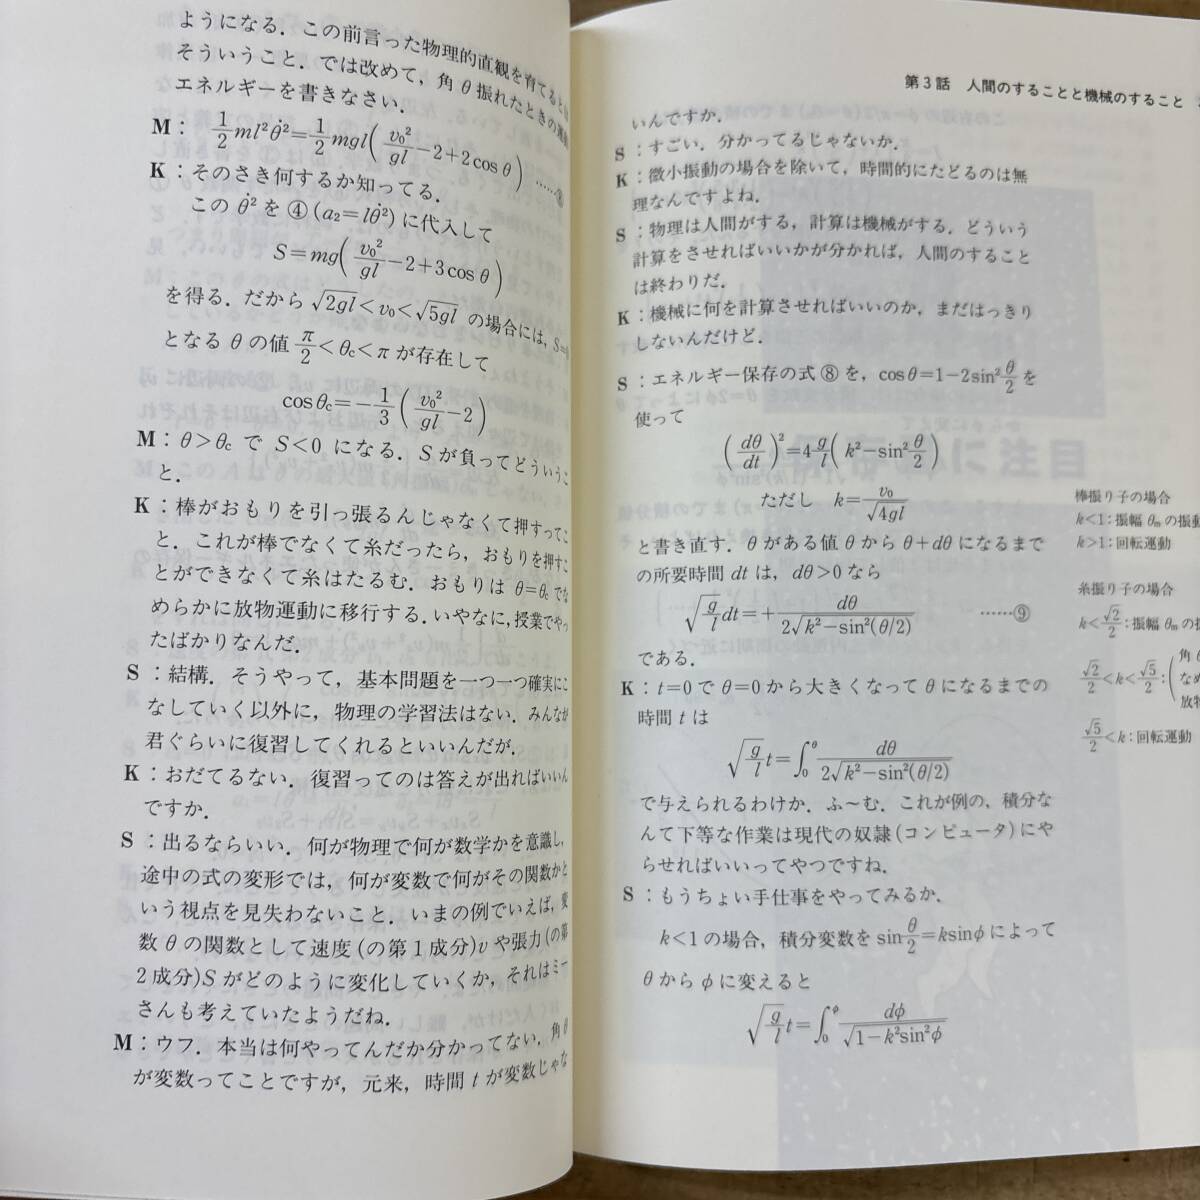 ようになる．この前言った物理的直観を育てるとは
そういうこと．では改めて，角θ振れたときの運動
エネルギーを書きなさい．
M： 1/2 ml²θ̇²=1/2 mgl(v₀²/gl−2+2cosθ) ……⑧
K：そのさき何するか知ってる．
この θ̇² を ④(a₂=lθ̇²)に代入して
S=mg(v₀²/gl−2+3cosθ)
を得る．だから √2gl<v₀<√5gl の場合には，S=0
となる θ の値 π/2<θc<π が存在して
cosθc=−1/3(v₀²/gl−2)
M：θ>θc で S<0 になる．Sが負ってどういうこ
と．
K：棒がおもりを引っ張るんじゃなくて押すってこ
と．これが棒でなくて糸だったら，おもりを押すこ
とができなくて糸はたるむ．おもりは θ=θc でな
めらかに放物運動に移行する．いやなに，授業でやっ
たばかりなんだ．
S：結構．そうやって，基本問題を一つ一つ確実にこ
なしていく以外に，物理の学習法はない．みんなが
君ぐらいに復習してくれるといいんだが．
K：おだてるない．復習ってのは答えが出ればいいん
ですか．
S：出るならいい．何が物理で何が数学かを意識し，
途中の式の変形では，何が変数で何がその関数かと
いう視点を見失わないこと．いまの例でいえば，変
数θの関数として速度(の第1成分)vや張力(の第
2成分)Sがどのように変化していくか，それはミー
さんも考えていたようだね．
M：ウフ．本当は何やってんだか分かってない．角θ
が変数ってことですが，元来，時間tが変数じゃな
第3話　人間のすることと機械のすること
いんですか．
S：すごい．分かってるじゃないか．
K：微小振動の場合を除いて，時間的にたどるのは無
理なんですよね．
S：物理は人間がする，計算は機械がする．どういう
計算をさせればいいかが分かれば，人間のすること
は終わりだ．
K：機械に何を計算させればいいのか，まだはっきり
しないんだけど．
S：エネルギー保存の式⑧を，cosθ=1−2sin²θ/2を
使って
(dθ/dt)²=4 g/l(k²−sin²θ/2)
ただし　k=v₀/√4gl
と書き直す．θがある値θからθ+dθになるまで
の所要時間 dt は，dθ>0なら
√g/l dt=+dθ/2√k²−sin²(θ/2) ……⑨
である．
K：t=0でθ=0から大きくなってθになるまでの
時間 t は
√g/l t=∫₀^θ dθ/2√k²−sin²(θ/2)
で与えられるわけか．ふ〜む．これが例の，積分な
んて下等な作業は現代の奴隷(コンピュータ)にや
らせればいいってやつですね．
S：もうちょい手仕事をやってみるか．
k<1の場合，積分変数をsinθ/2=ksinφによって
θからφに変えると
√g/l t=∫₀^φ dφ/√1−k²sin²φ
棒振り子の場合
k<1：振幅 θm の振動
k>1：回転運動
糸振り子の場合
k<√2/2：振幅 θm の振
√2/2<k<√5/2：(角θ
な め
放物
√5/2<k：回転運動